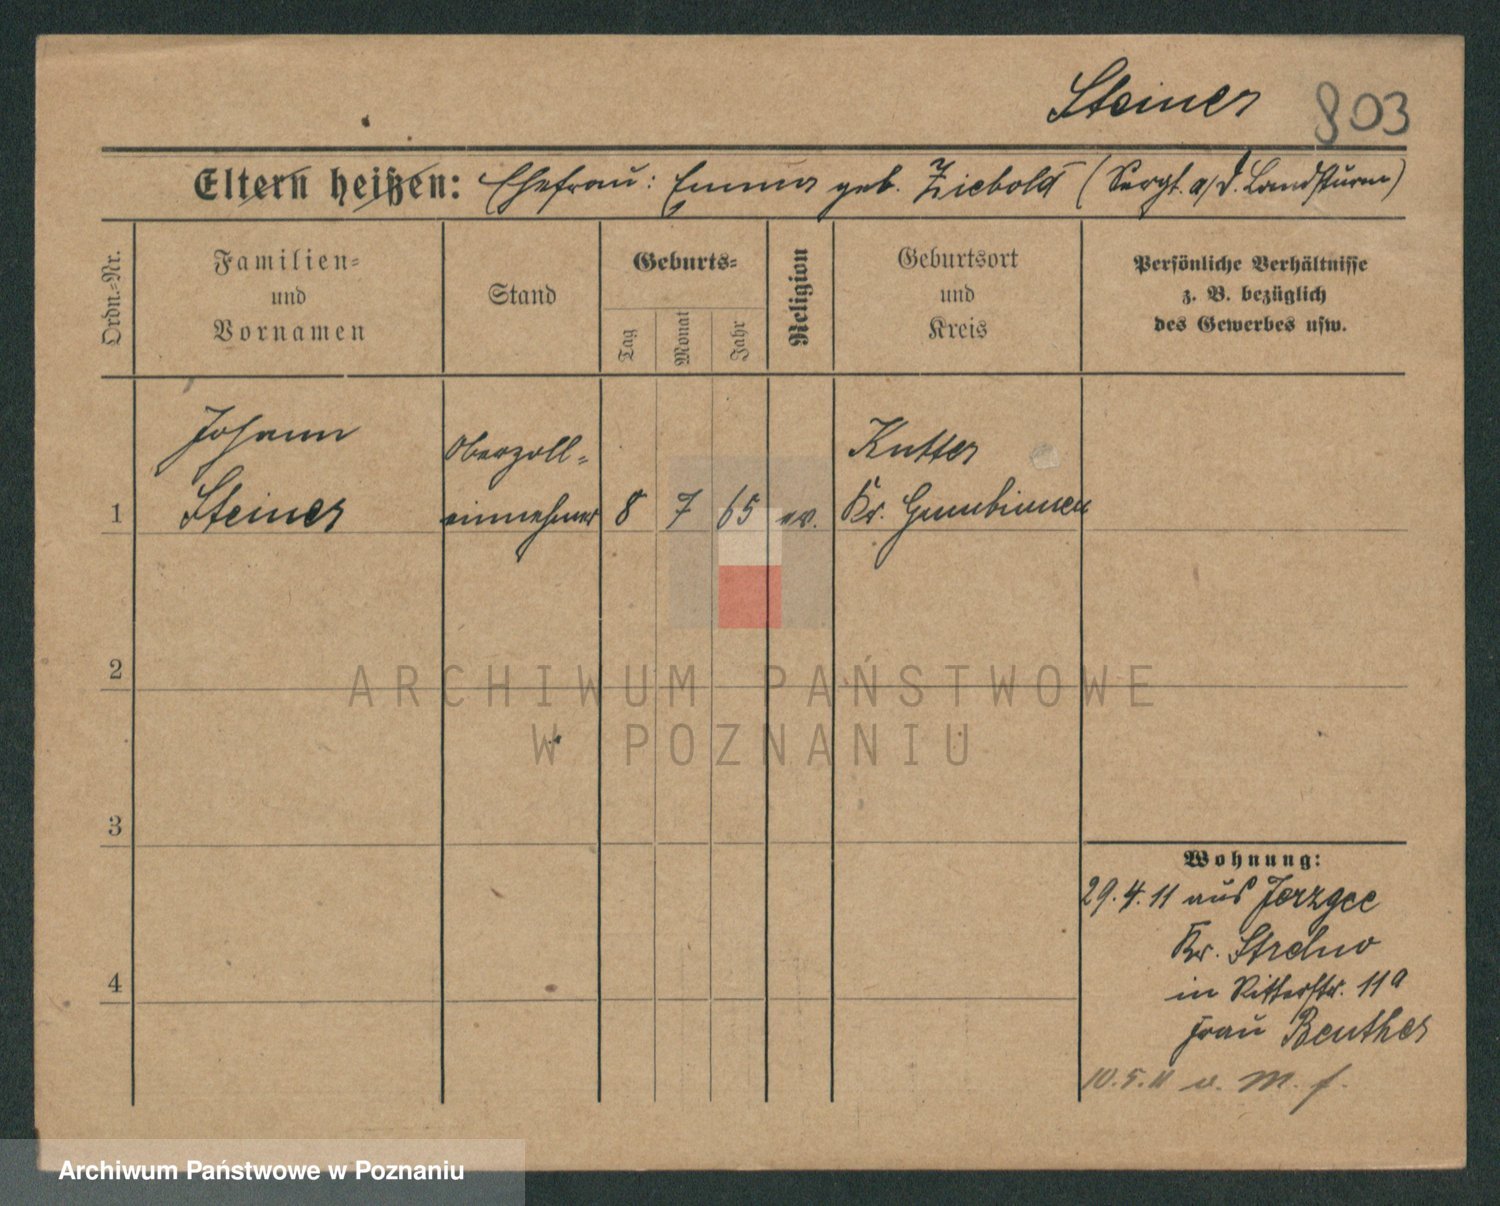 Steiner 803
Eltern heißen: Ehefrau: Emma geb. Ziebold (Sergt. a/d. Landsturm)
Ordn.-Nr.
Familien-
und
Vornamen
Stand
Geburts-
Tag
Monat
Jahr
Religion
Geburtsort
und
Kreis
Persönliche Verhältnisse
z. B. bezüglich
des Gewerbes usw.
Johann
Steiner
Oberzoll-
einnehmer
1
8
7
65
ev.
Kutter
Kr. Gumbinnen
2
3
4
Wohnung:
29.4.11 aus
Kr. Strelno
in Ritterstr. 11a
Frau Beuther
10.5.11 v. M. f.
ARCHIWUM PAŃSTWOWE
W POZNANIU
Archiwum Państwowe w Poznaniu